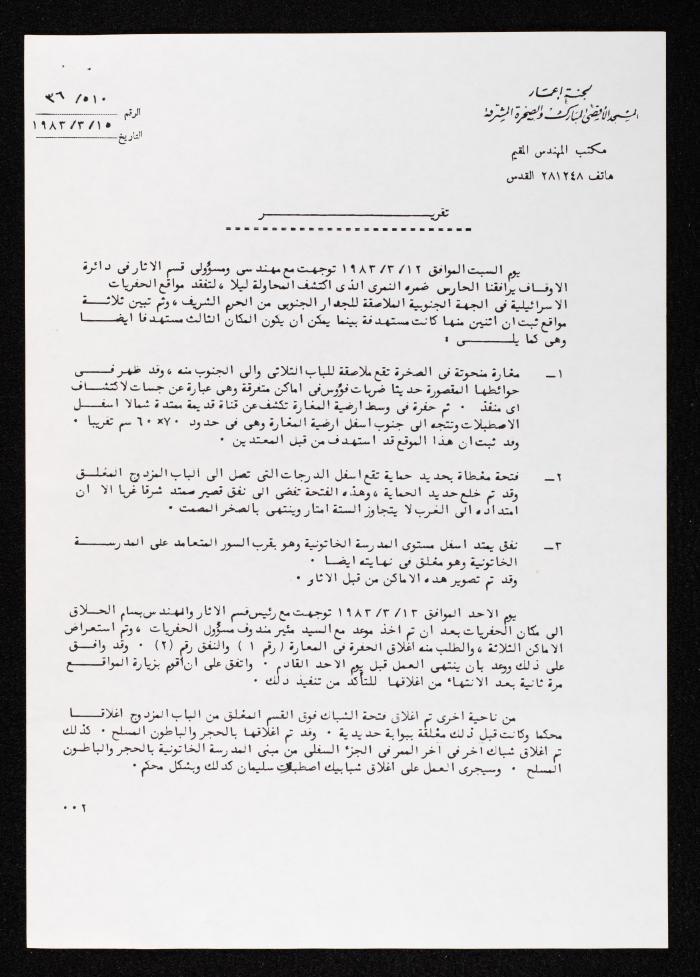 لجنة إعمار
المسجد الأقصى المبارك والصخرة المشرفة
مكتب المهندس المقيم
هاتف ٢٨١٢٤٨ القدس
٣٦/٥١٠
الرقم
١٩٨٣/٣/١٥
التاريخ
تقريـــــــــــــــــر
يوم السبت الموافق ١٩٨٣/٣/١٢ توجهت مع مهندسي ومسؤولي قسم الاثار في دائرة
الاوقاف يرافقنا الحارس ضمره النمرى الذى اكتشف المحاولة ليلا ، لتفقد مواقع الحفريات
الاسرائيلية في الجهة الجنوبية الملاصقة للجدار الجنوبي من الحرم الشريف ، وتم تبين ثلاثـــة
مواقع ثبت ان اثنين منها كانت مستهدفة بينما يمكن ان يكون المكان الثالث مستهدفا ايضـــا
وهي كما يلـــــي :
١ــ مغارة منحوتة في الصخرة تقع ملاصقة للباب الثلاثي والى الجنوب منه ، وقد ظهر فـــي
حوائطها المقصورة حديثا ضربات فؤوس في اماكن متفرقة وهي عبارة عن جسات لاكتشـــاف
اى منفذ ٠ ثم حفرة في وسط ارضية المغارة تكشف عن قناة قديمة ممتدة شمالا اسفـــل
الاصطبلات وتتجه الى جنوب اسفل ارضية المغارة وهي في حدود ٧٠×٦٠ سم تقريبا ٠
وقد ثبت ان هذا الموقع قد استهدف من قبل المعتدين ٠
٢ــ فتحة مغطاة بحديد حماية تقع اسفل الدرجات التي تصل الى الباب المزدوج المغلـــق
وقد تم خلع حديد الحماية ، وهذه الفتحة تفضي الى نفق قصير ممتد شرقا غربا الا ان
امتداده الى الغرب لا يتجاوز الستة امتار وينتهي بالصخر المصمت ٠
٣ــ نفق يمتد اسفل مستوى المدرسة الخاتونية وهو بقرب السور المتعامد على المدرســـة
الخاتونية وهو مغلق في نهايته ايضا ٠
وقد تم تصوير هذه الاماكن من قبل الاثار ٠
يوم الاحد الموافق ١٩٨٣/٣/١٣ توجهت مع رئيس قسم الاثار والمهندس بسام الحـــلاق
الى مكان الحفريات بعد ان تم اخذ موعد مع السيد مئير مندوف مسؤول الحفريات ، وتم استعراض
الاماكن الثلاثة ، والطلب منه اغلاق الحفرة في المغارة ( رقم ١ ) والنفق رقم (٢) ٠ وقد وافـــق
على ذلك ووعد بان ينتهي العمل قبل يوم الاحد القادم ٠ واتفق على ان أقوم بزيارة المواقـــع
مرة ثانية بعد الانتهاء من اغلاقها للتأكد من تنفيذ ذلك ٠
من ناحية اخرى تم اغلاق فتحة الشباك فوق القسم المغلق من الباب المزدوج اغلاقـــا
محكما وكانت قبل ذلك مغلقة ببوابة حديدية ٠ وقد تم اغلاقها بالحجر والباطون المسلح ٠ كذلك
تم اغلاق شباك اخر في اخر الممر في الجزء السفلي من مبنى المدرسة الخاتونية بالحجر والباطـون
المسلح ٠ وسيجرى العمل على اغلاق شبابيك اصطبلات سليمان كذلك وبشكل محكم ٠
٠٠٢